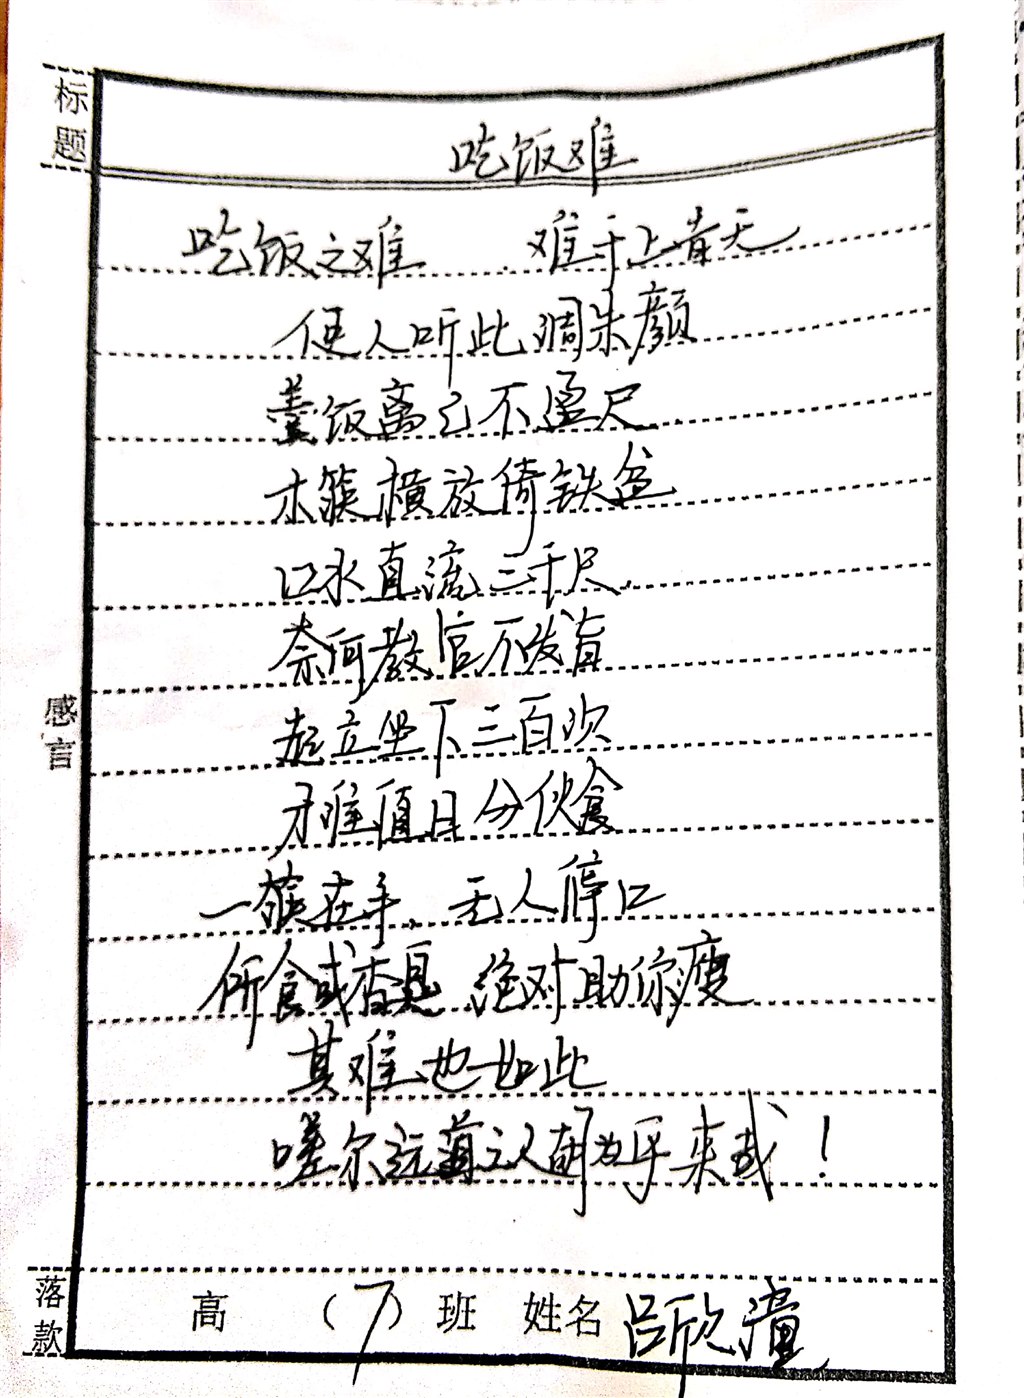 标题
吃饭难
吃饭之难 难于上青天
使人听此凋朱颜
羹饭离己不盈尺
木筷横放倚铁盆
口水直流三千尺
奈何教官不发盲
起立坐下三百次
才唯值日分伙食
一筷在手,无人停口
所食或香臭 绝对助你瘦
其难也如此
嗟尔远道之人胡为乎来哉!
感言
落款
高 (7)班 姓名 吕欣